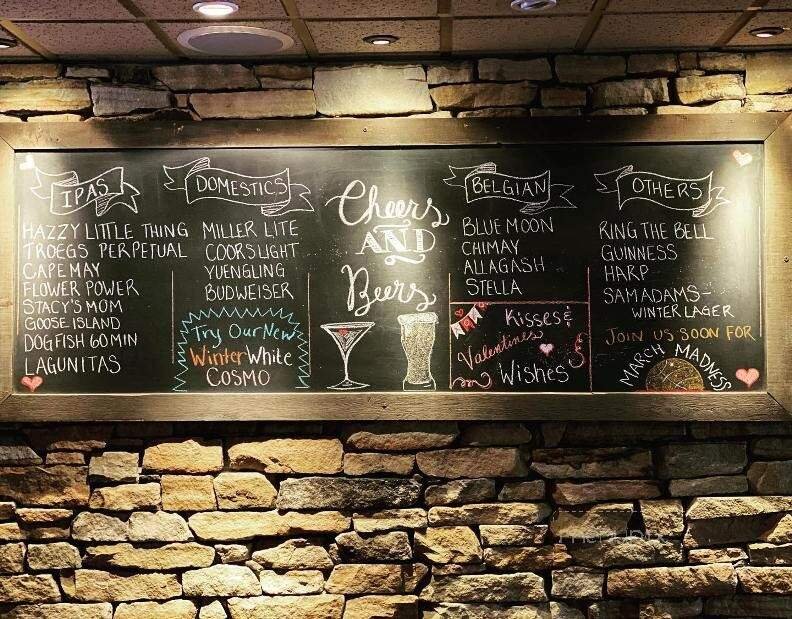 IPAS
HAZZY LITTLE THING
TROEGS PERPETUAL
CAPE MAY
FLOWER POWER
STACY'S MOM
GOOSE ISLAND
DOGFISH 60 MIN
LAGUNITAS
DOMESTICS
MILLER LITE
COORS LIGHT
YUENGLING
BUDWEISER
Try Our New
Winter White
COSMO
Cheers
AND
Beers
BELGIAN
BLUE MOON
CHIMAY
ALLAGASH
STELLA
Kisses &
Valentines
Wishes
OTHERS
RING THE BELL
GUINNESS
HARP
SAM ADAMS -
WINTER LAGER
JOIN US SOON FOR
MARCH MADNESS